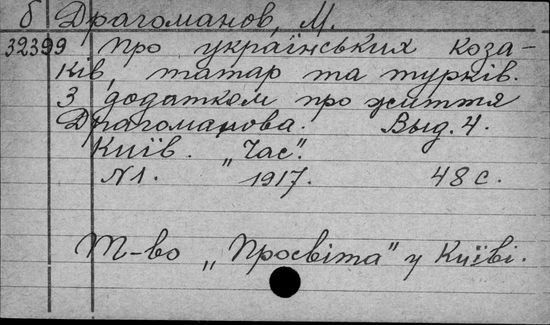 б Драгоманов, М.
32399 Про українських коза-
ків, татар та турків.
З додатком про життя
Драгоманова. Выд. 4.
Київ. „Час".
N1. 1917. 48 с.
Т-во „Просвіта" у Київі.